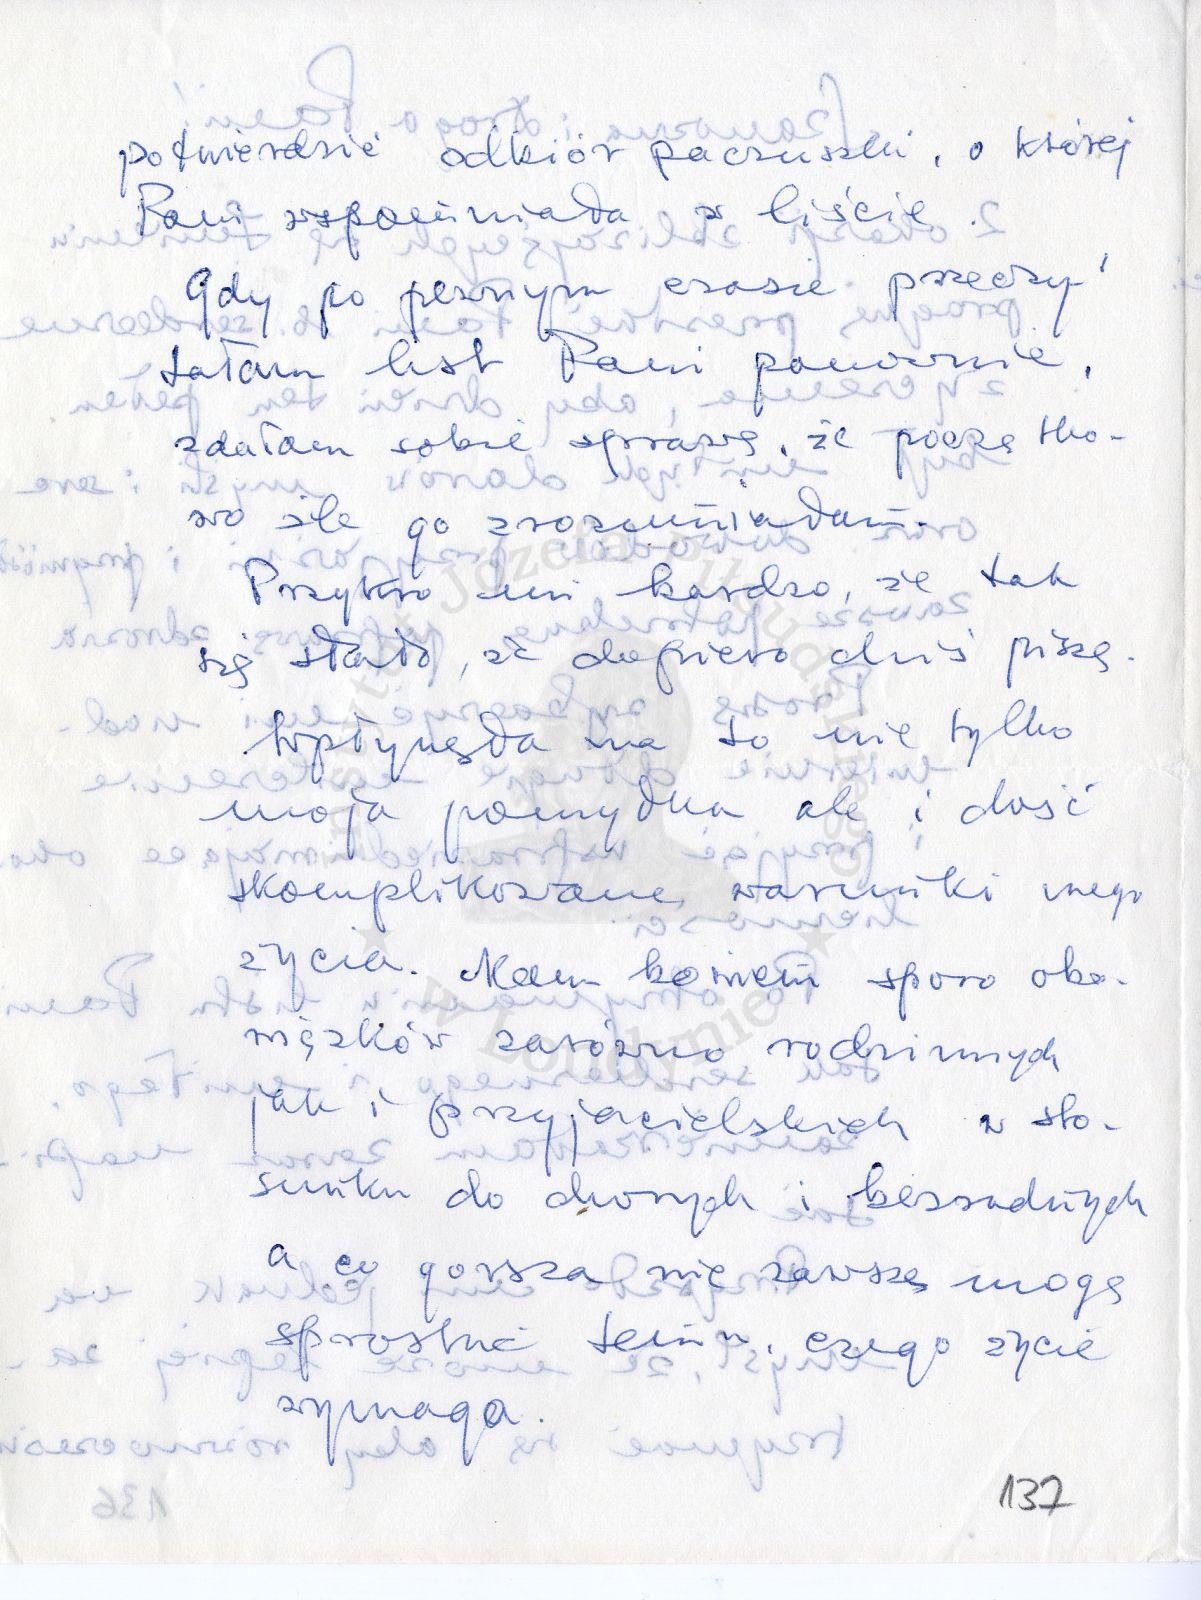 potwierdzić odbiór paczuszki, o której
Pani wspominała w liście.
Gdy po pewnym czasie przeczy-
tałam list Pani ponownie,
zdałam sobie sprawę, że początko-
wo źle go zrozumiałam.
Przykro mi bardzo, że tak
się stało, że dopiero dziś piszę.
Wpłynęła na to nie tylko
moja pomyłka ale i dość
skomplikowane warunki mego
życia. Mam bowiem sporo obo-
wiązków zarówno rodzinnych
jak i przyjacielskich w sto-
sunku do chorych i bezradnych
a co gorsza nie zawsze mogę
sprostać temu, czego życie
wymaga.
137
Instytut Józefa Piłsudskiego
w Londynie